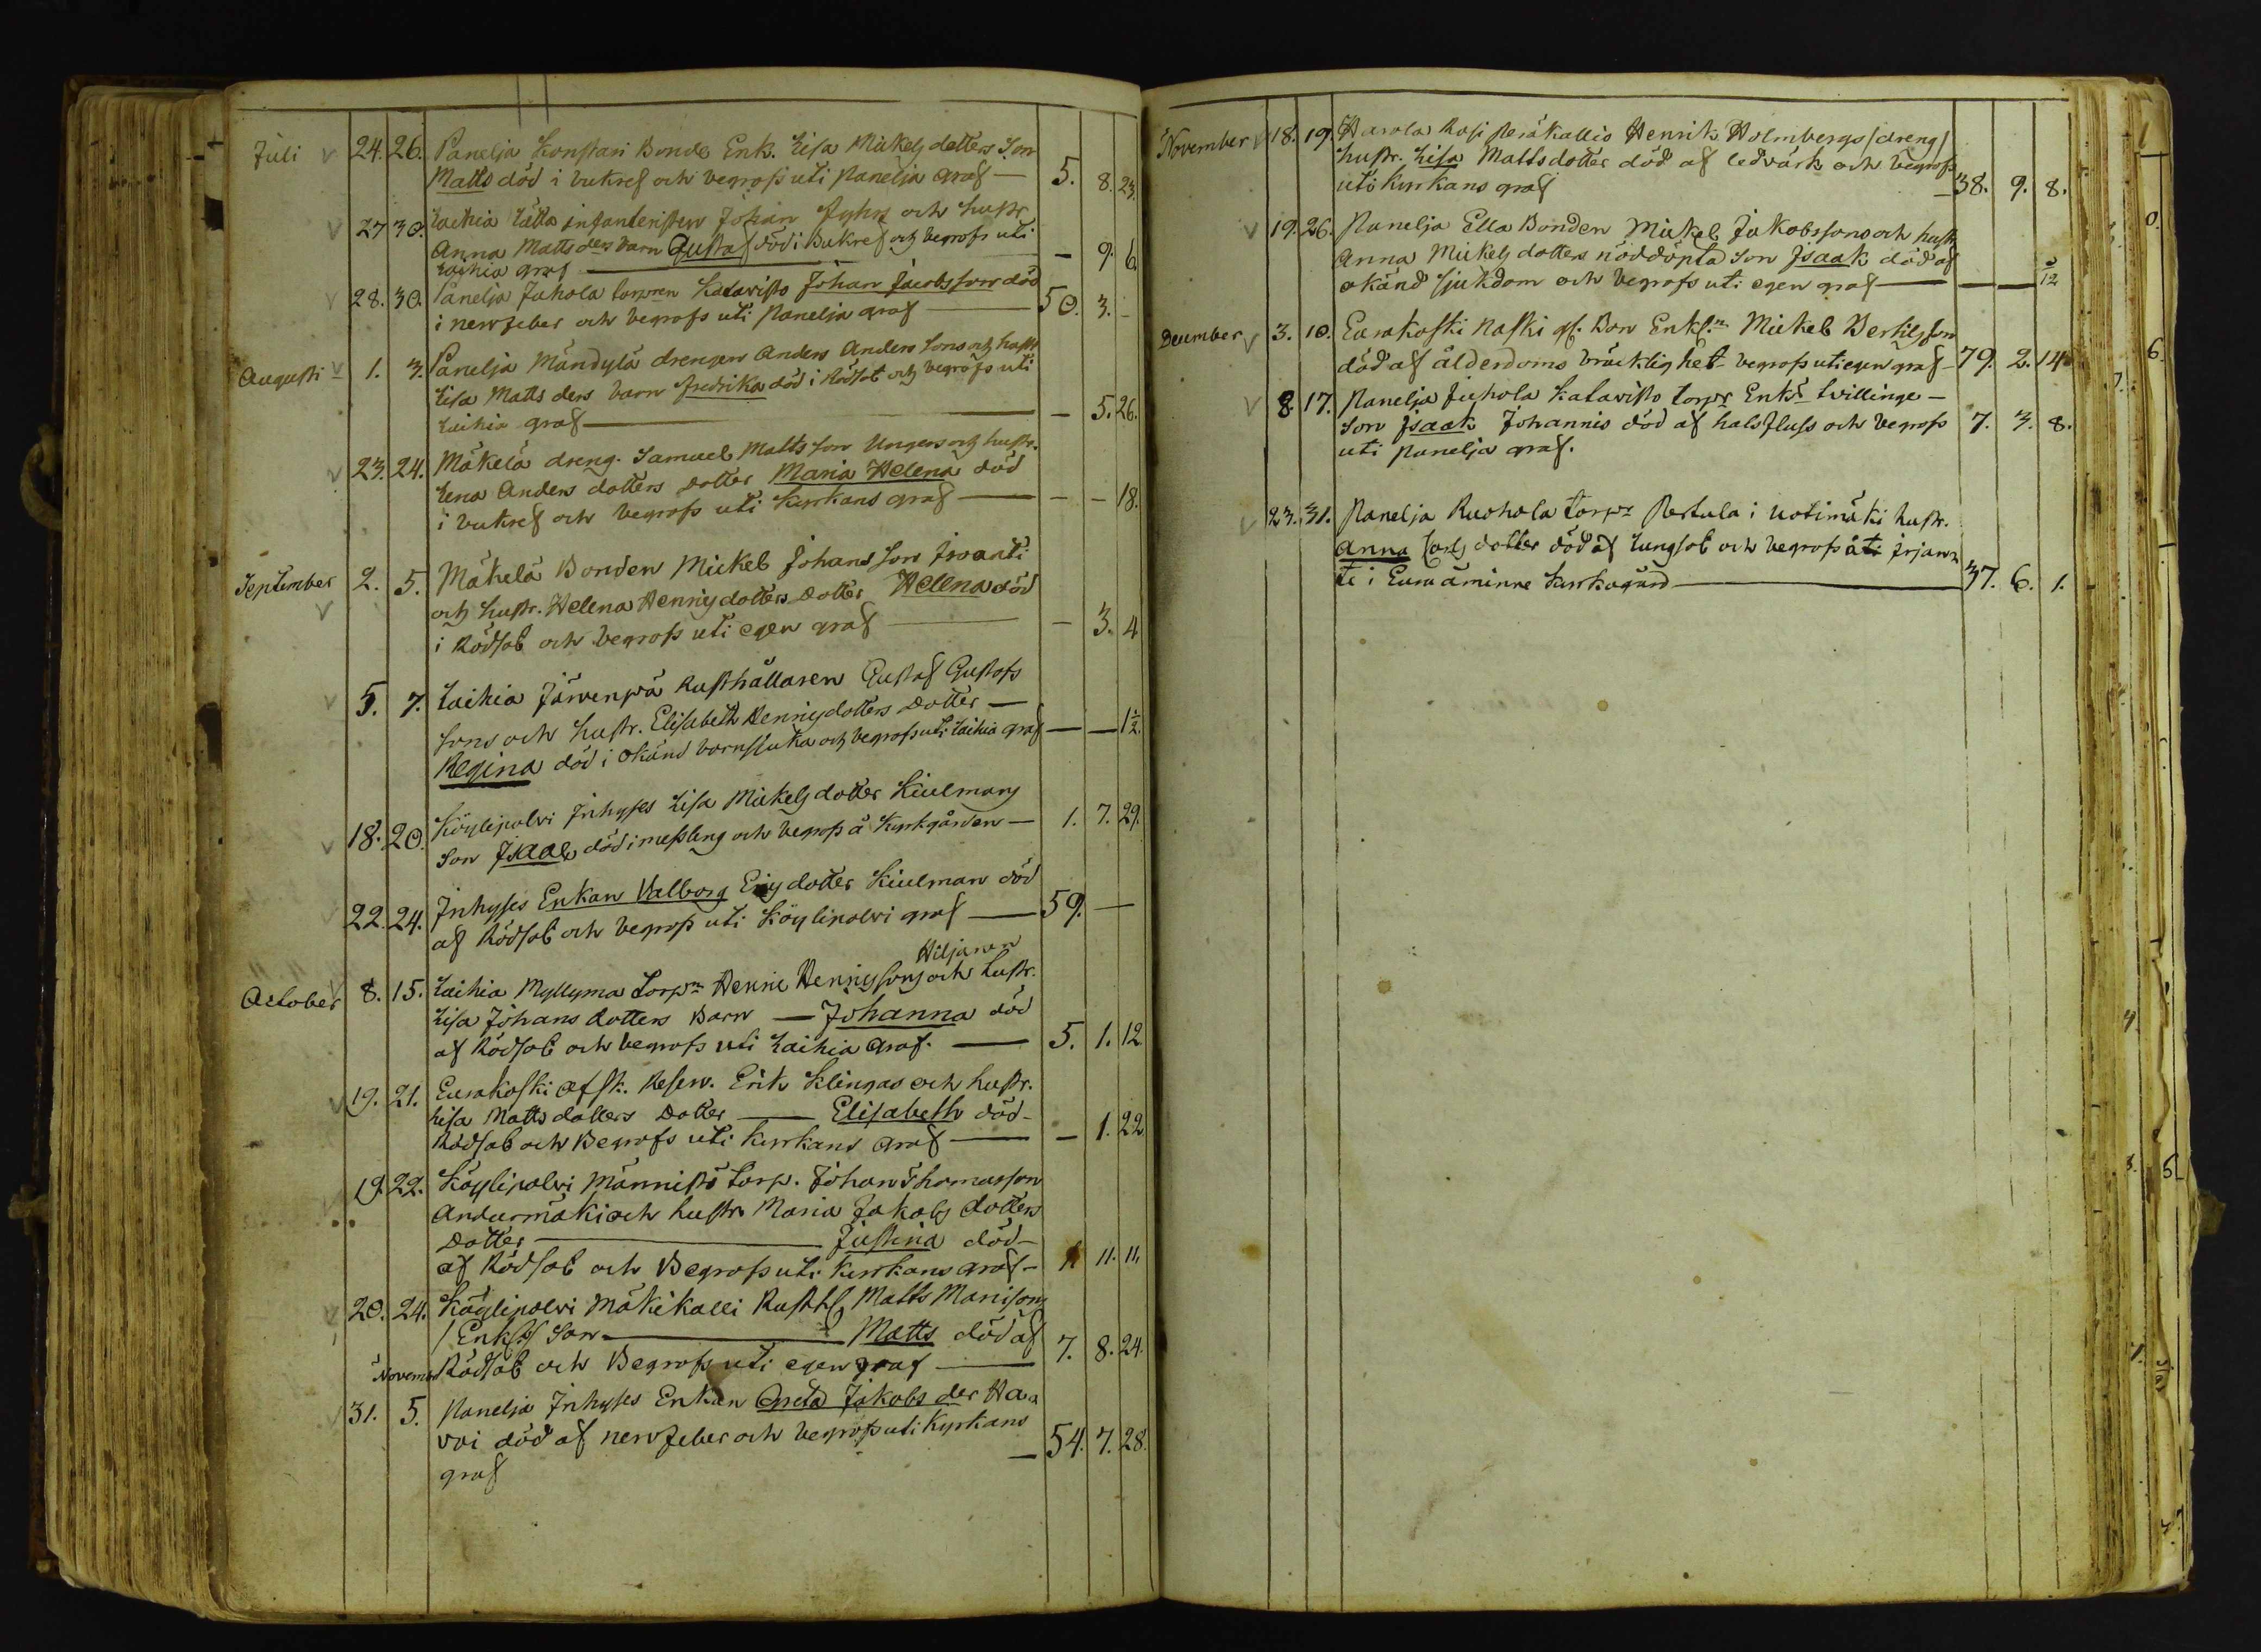 Juli 24. 26. Panelja Konstari Bonde Enk. Lisa Mickels dotters Son
Matts död i bukref och begrofs uti Panelja graf — 5. 8. 23.
27 30. Laihia Lätta infanteristen Johan och hustr
Anna Matts ders barn Gustaf död i Bukref och begrofs uti
Laihia graf — — 9. 6.
28. 30. Panelja Juhola torpren Katavisto Johan Jacobsson död
i nervfeber och begrofs uti Panelja graf — 50. 3. -
Augusti 1. 3. Panelja Mändylä drengen Anders Anderssons och hustr
Lisa Matts ders barn Fredrika död i Rödsot och begrofs uti
Laihia graf — — 5. 26.
23. 24. Mäkelä dreng. Samuel Mattsson Ungers och hustr.
Lena Anders dotters dotter Maria Helena död
i bukref och begrofs uti Kyrkans graf — - - 18.
September 2. 5. Mäkelä Bonden Mickel Johansson Iwanti
och hustr. Helena Henrigsdotters Dotter Helena död
i Rödsot och begrofs uti egen graf — — 3. 4
5. 7. Laihia Järvenpä Rusthållaren Gustaf Gustafs
sons och hustr. Elisabeth Henrigsdotters Dotter —
Regina död i okänd barnsjuka och begrofs uti Laihia graf — — 1½.
18. 20. Köylipolvi Inhyses Lisa Mickels dotter Kiulmans
Son Isaak död i messling och begrofs å Kyrkgården — 1. 7. 29.
22. 24. Inhyses Enkan Valborg Erigs dotter Kiulman död
af Rödsot och begrofs uti Köylipolvi graf — 59. —
Hiljanen
October 8. 15. Laihia Myllyma Torpn Henric Henrigssons och hustr.
Lisa Johans dotters Barn — Johanna död
af Rödsot och begrofs uti Laihia graf. — 5. 1. 12.
19. 21. Eurakoski afsk. Reserv. Erik Klingas och hustr.
Lisa Matts dotters Dotter — Elisabeth död -
Rödsot och Begrofs uti Kyrkans graf — - 1. 22
19. 22. Köylipolvi Männistö torp. Johan Thomasson
Andurmäki och hustr Maria Jakobs dotters
Dotter — Justina död -
af Rödsot och Begrofs uti Kyrkans graf - 11. 11.
20. 24. Köylipolvi Mäkikalli Rusthl Matts Marisons
/ Enkls/ Son — Matts död af
November Rödsot och Begrofs uti egen graf — 7. 8. 24.
31. 5. Panelja Inhyses Enkan Greta Jakobs der Haa
voi död af nervfeber och begrofs uti Kyrkans
graf — 54. 7. 28.
November 18. 19. Harola Rosi Peräkallio Henrik Holmbergs /dreng/
hustr. Lisa Mattsdotter död af ledvärk och begrofs
uti Kyrkans graf — 38. 9. 8.
19. 26. Panelja Ella Bonden Mickel Jakobssons och hustr
Anna Mickels dotters nöddöpta Son Isaak död af
okänd sjukdom och begrofs uti egen graf — — — ½
December 3. 10. Eurakoski Naski gl. Bon Enkln Mickel Bertilsson
död af ålderdoms bräcklighet begrofs uti egen graf - 79. 2. 14
8. 17. Panelja Juhola Katavisto torpr Enkl tvillinge -
Son Isaak Johannis död af halsfluss och begrofs 7. 3. 8.
uti Panelja graf.
23. 31. Panelja Ruohola torpr Pertula i Uotimäki hustr.
Anna Carls dotter död af lungsot och begrofs
i Euraåminne Kyrkogård — 37. 6. 1.